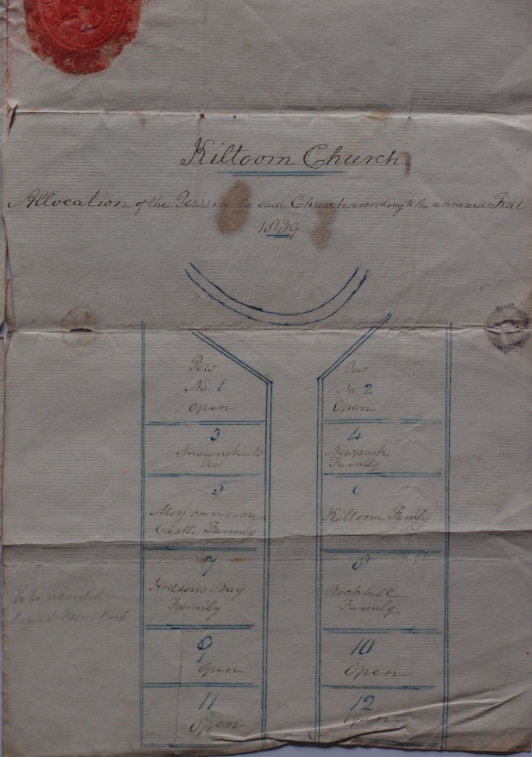 Kiltoom Church
Allocation of the Pews in the said Church according to the annexed
1839
Pew
No. 1
Open
Pew
No. 2
Open
3
Incumbent's
Pew
4
Newpark
Family
5
Castle Family
6
Kiltoom Family
7
Hodsons Bay
Family
8
Rockhill
Family
9
Open
10
Open
11
Open
12
Open
To be recorded in
Book